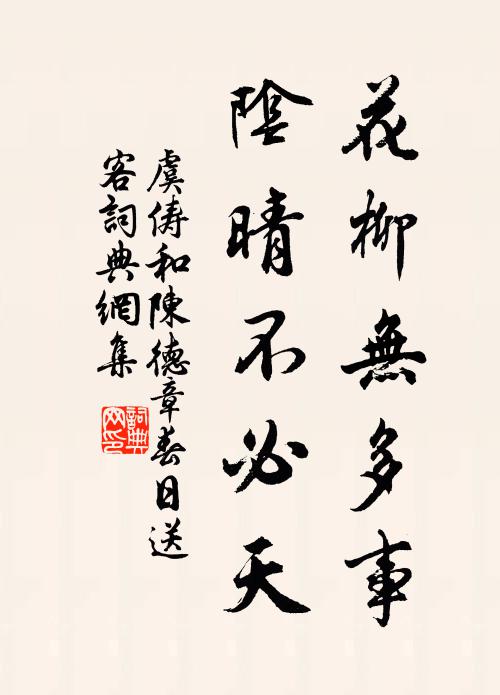 花柳無多事
陰晴不必天
虞儔和陳德章春日送
客詞典網集
詞典
网印